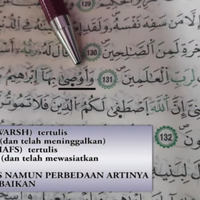 مَن سَفِهَ نَفْسَهُ
129
خِرَةِ لَمِنَ الصَّٰلِحِينَ 130
لِرَبِّ الْعَٰلَمِينَ 131 وَأَوْصَىٰ بِهَا إِبْرَٰهِيمُ
إِنَّ اللَّهَ اصْطَفَىٰ لَكُمُ الدِّينَ فَلَا تَمُوتُنَّ
132
VARSH) tertulis
(dan telah meninggalkan)
HAFS) tertulis
(dan telah mewasiatkan
S NAMUN PERBEDAAN ARTINYA
BAIKAN